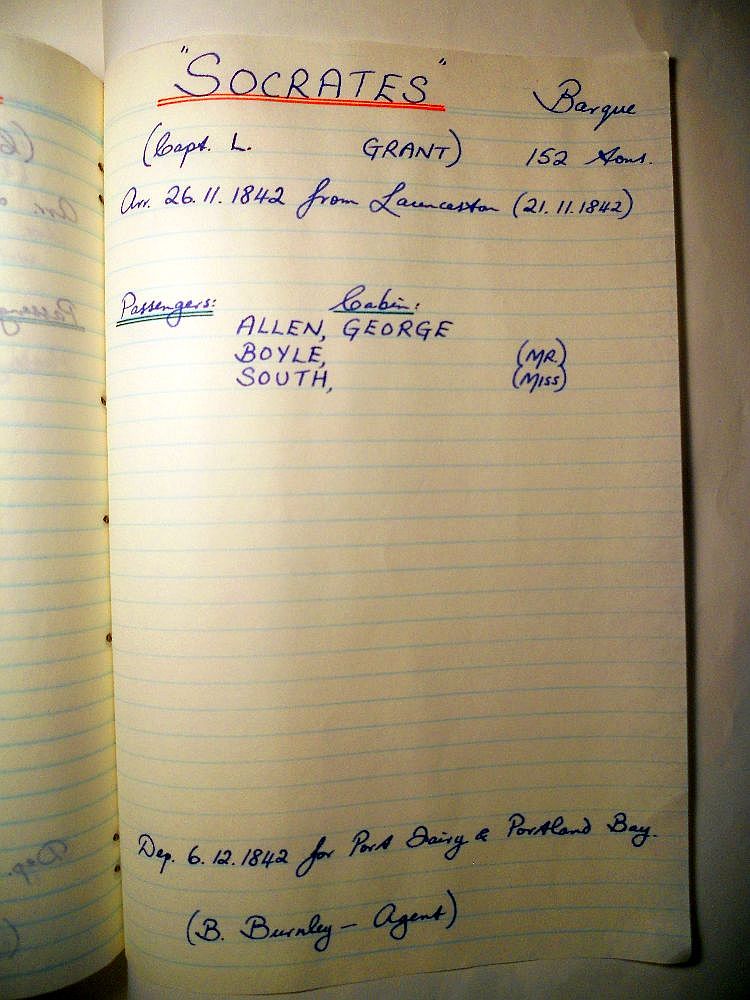 "SOCRATES"
Barque
(Capt. L. GRANT) 152 tons.
Arr. 26.11.1842 from Launceston (21.11.1842)
Passengers: Cabin:
ALLEN, GEORGE
BOYLE, (MR.)
SOUTH, (MISS)
Dep. 6.12.1842 for Port Fairy & Portland Bay.
(B. Burnley - Agent)